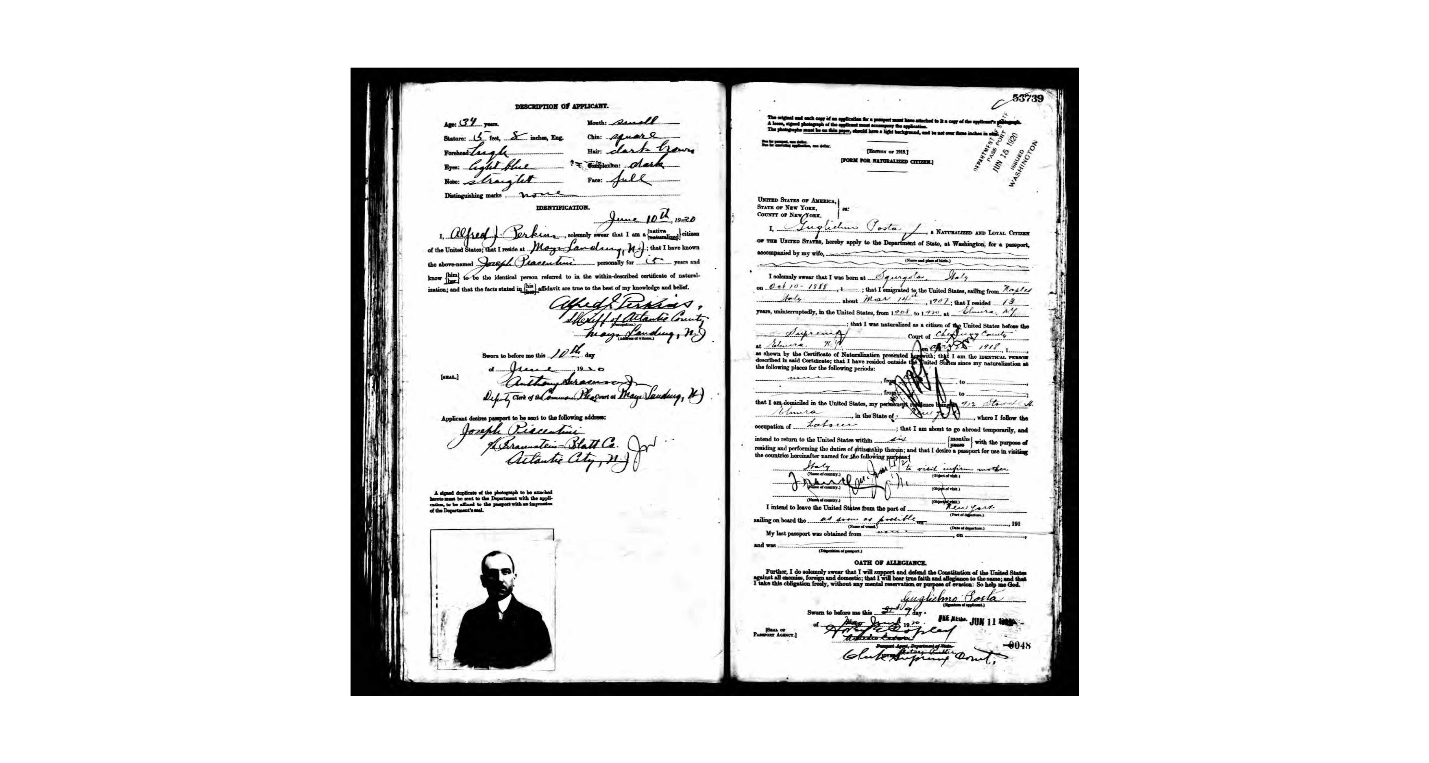 DESCRIPTION OF APPLICANT.
Age: 34 years. Mouth: small
Stature: 5 feet, 8 inches, Eng. Chin: square
Forehead: high Hair: dark brown
Eyes: light blue Complexion: dark
Nose: straight Face: full
Distinguishing marks none
IDENTIFICATION.
June 10th, 1920
I, Alfred J. Perkins, solemnly swear that I am a {native naturalized} citizen
of the United States; that I reside at Mays Landing, N.J.; that I have known
the above-named Joseph Piacentini personally for 5 years and
know {him her} to be the identical person referred to in the within-described certificate of natural-
ization; and that the facts stated in {his her} affidavit are true to the best of my knowledge and belief.
Alfred J. Perkins.
Sheriff of Atlantic County
Mays Landing, N.J.
(Address of witness.)
Sworn to before me this 10th day
[SEAL.] of June 1920
Anthony Jr
Deputy Clerk of the Common Pleas Court at Mays Landing, N.J.
Applicant desires passport to be sent to the following address:
Joseph Piacentini
% Braunstein-Blatt Co.
Atlantic City, N.J.
A signed duplicate of the photograph to be attached
hereto must be sent to the Department with the appli-
cation, to be affixed to the passport with an impression
of the Department's seal.
53739
The original and each copy of an application for a passport must have attached to it a copy of the applicant's photograph.
A loose, signed photograph of the applicant must accompany the application.
The photographs must be on thin paper, should have a light background, and be not over three inches in size.
Fee for passport, one dollar.
Fee for executing application, one dollar.
[EDITION OF 1918.]
[FORM FOR NATURALIZED CITIZEN.]
DEPARTMENT OF STATE
PASSPORT
JUN 15 1920
ISSUED
WASHINGTON
UNITED STATES OF AMERICA,
STATE OF NEW YORK, ss:
COUNTY OF NEW YORK,
I, Guglielmo Posta, A NATURALIZED AND LOYAL CITIZEN
OF THE UNITED STATES, hereby apply to the Department of State, at Washington, for a passport,
accompanied by my wife,
(Name and place of birth.)
I solemnly swear that I was born at Italy
on Oct 10 - 1888; that I emigrated to the United States, sailing from Naples
Italy about Mar 14th, 1907; that I resided 13
years, uninterruptedly, in the United States, from 1908 to 1920 at Elmira, N.Y.
; that I was naturalized as a citizen of the United States before the
Supreme Court of Chemung County
at Elmira N.Y. on 1918,
as shown by the Certificate of Naturalization presented herewith; that I am the IDENTICAL PERSON
described in said Certificate; that I have resided outside the United States since my naturalization at
the following places for the following periods:
none, from to
, from to
that I am domiciled in the United States, my permanent residence being at 912
Elmira, in the State of, where I follow the
occupation of Laborer; that I am about to go abroad temporarily, and
intend to return to the United States within six {months years} with the purpose of
residing and performing the duties of citizenship therein; and that I desire a passport for use in visiting
the countries hereinafter named for the following purpose:
Italy to visit infirm mother
(Name of country.) (Object of visit.)
France
(Name of country.) (Object of visit.)
(Name of country.) (Object of visit.)
I intend to leave the United States from the port of New York
(Port of departure.)
sailing on board the as soon as possible on, 191
(Name of vessel.) (Date of departure.)
My last passport was obtained from none, on,
and was
(Disposition of passport.)
OATH OF ALLEGIANCE.
Further, I do solemnly swear that I will support and defend the Constitution of the United States
against all enemies, foreign and domestic; that I will bear true faith and allegiance to the same; and that
I take this obligation freely, without any mental reservation or purpose of evasion: So help me God.
Guglielmo Posta
(Signature of applicant.)
Sworn to before me this day
of June JUN 11
[SEAL OF
PASSPORT AGENCY.]
Passport Agent, Department of State.
0048
Clerk Supreme Court.